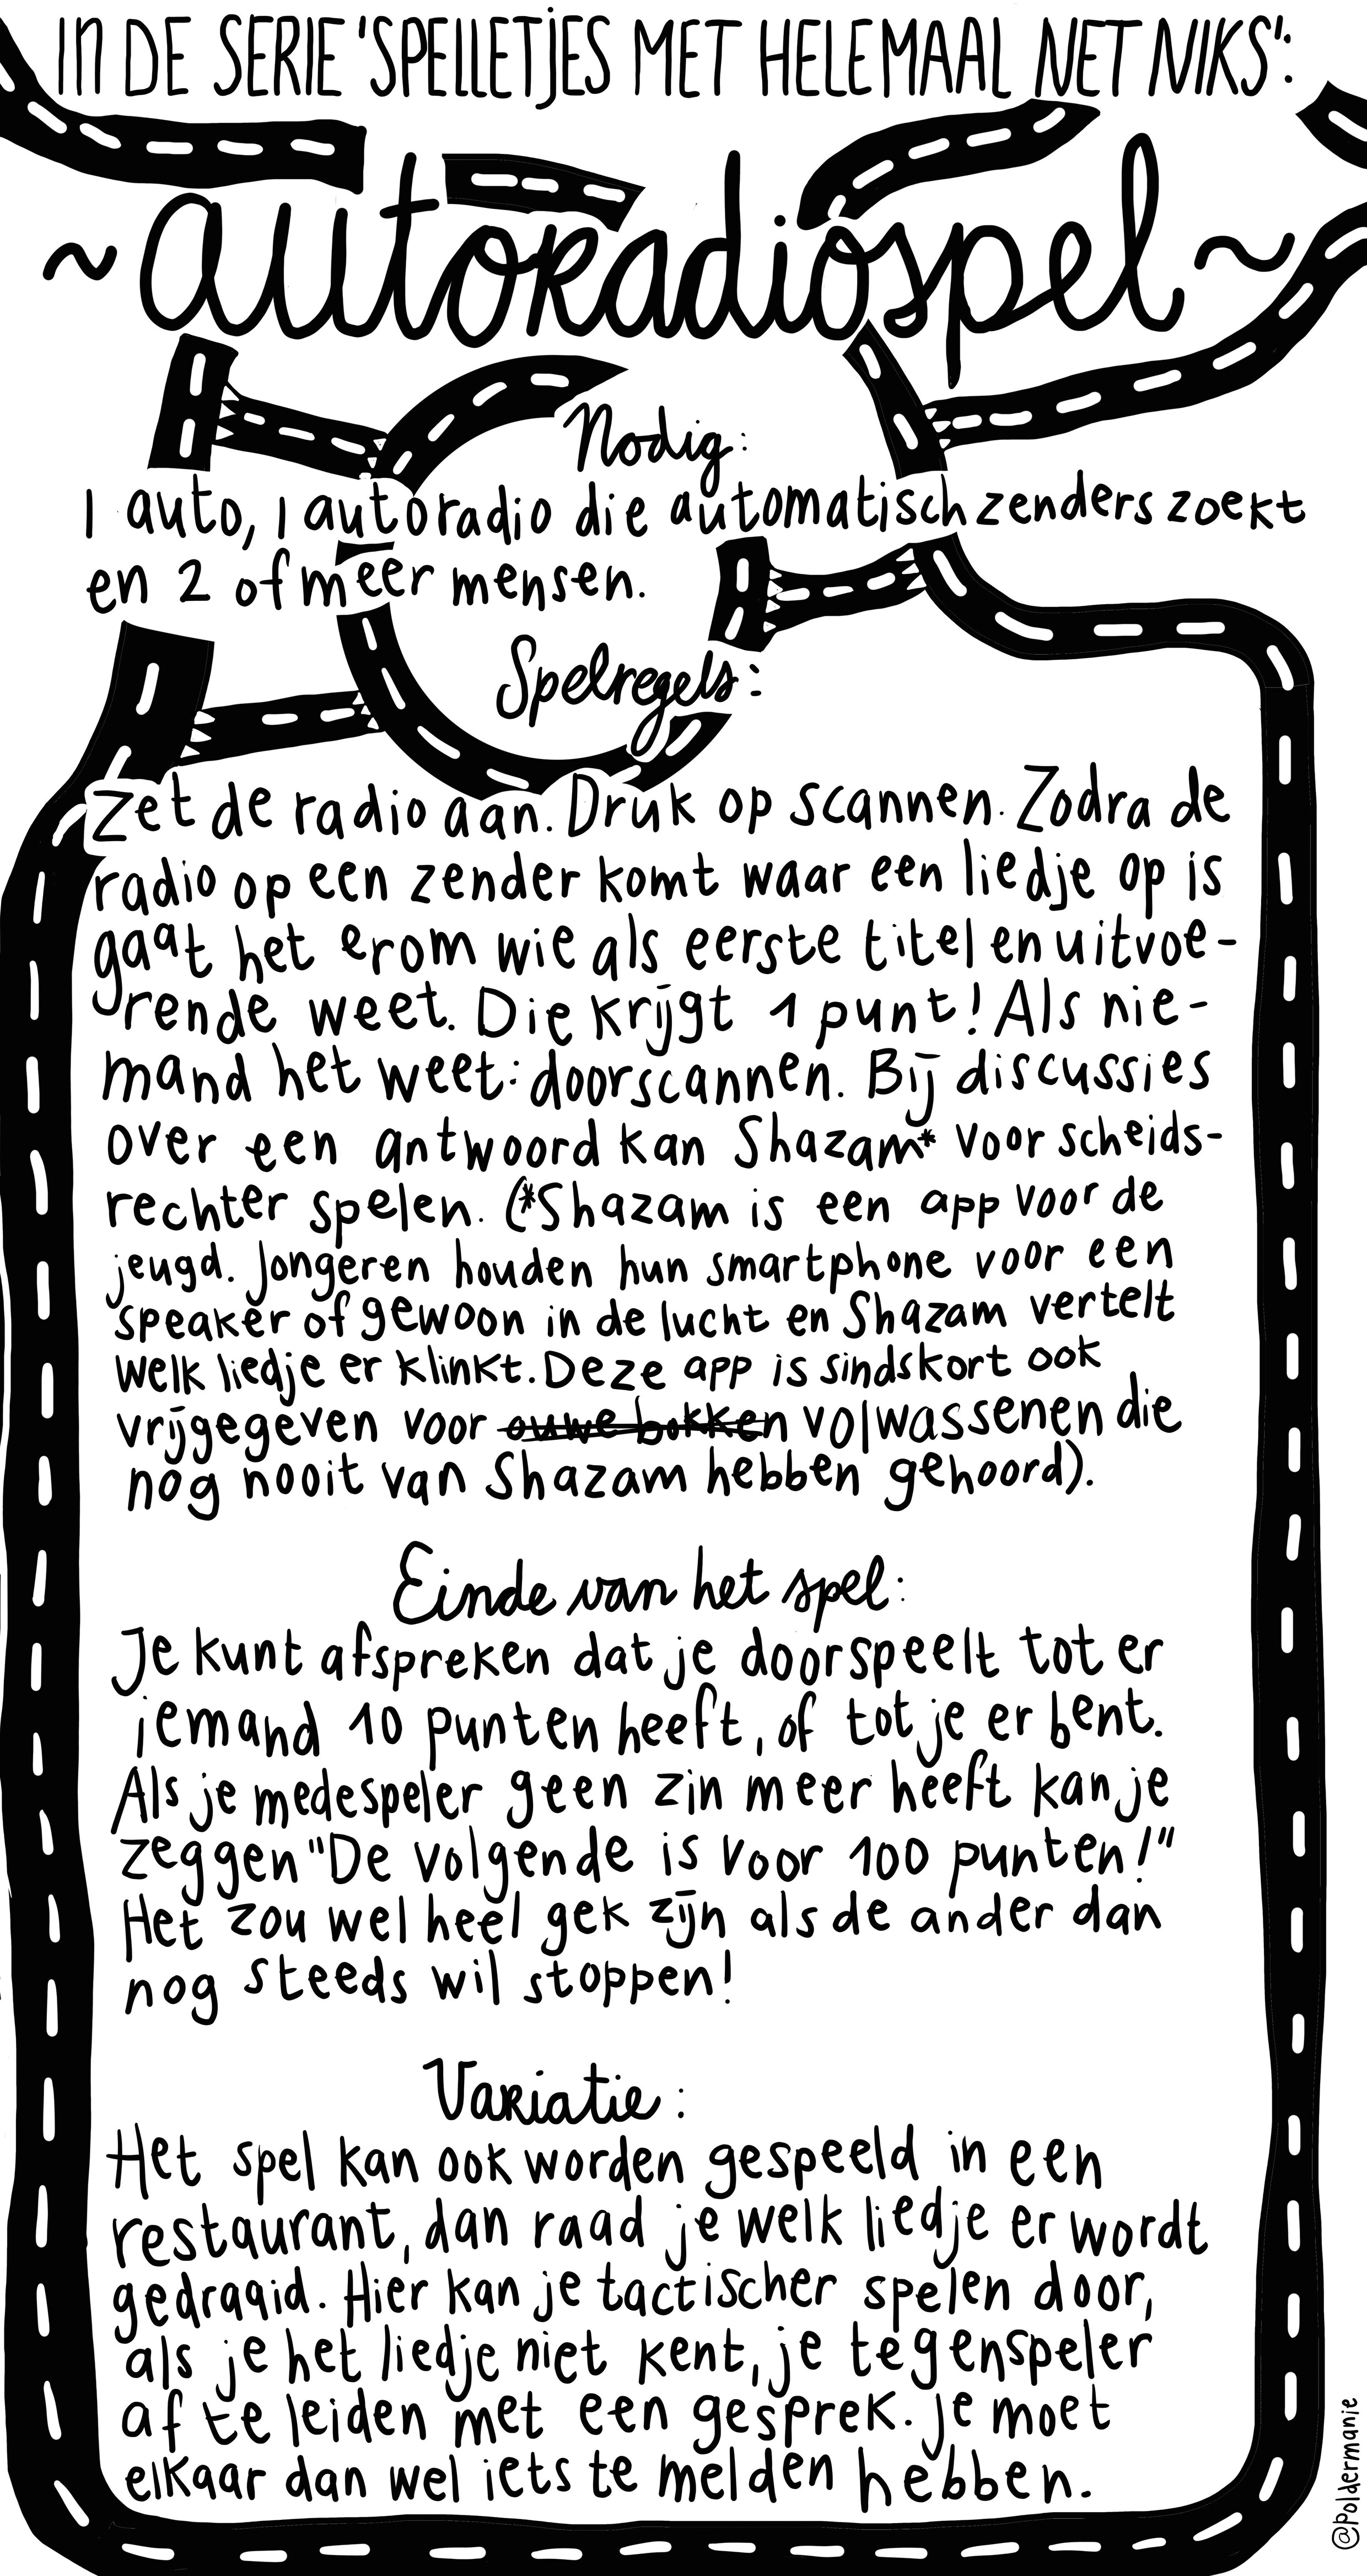 IN DE SERIE 'SPELLETJES MET HELEMAAL NET NIKS':
~autoradiospel~
Nodig:
1 auto, 1 autoradio die automatisch zenders zoekt
en 2 of meer mensen.
Spelregels:
Zet de radio aan. Druk op scannen. Zodra de
radio op een zender komt waar een liedje op is
gaat het erom wie als eerste titel en uitvoe-
rende weet. Die krijgt 1 punt! Als nie-
mand het weet: doorscannen. Bij discussies
over een antwoord kan Shazam* voor scheids-
rechter spelen. (*Shazam is een app voor de
jeugd. Jongeren houden hun smartphone voor een
speaker of gewoon in de lucht en Shazam vertelt
welk liedje er klinkt. Deze app is sindskort ook
vrijgegeven voor ouwe bokken volwassenen die
nog nooit van Shazam hebben gehoord).
Einde van het spel:
Je kunt afspreken dat je doorspeelt tot er
iemand 10 punten heeft, of tot je er bent.
Als je medespeler geen zin meer heeft kan je
zeggen "De volgende is voor 100 punten!"
Het zou wel heel gek zijn als de ander dan
nog steeds wil stoppen!
Variatie:
Het spel kan ook worden gespeeld in een
restaurant, dan raad je welk liedje er wordt
gedraaid. Hier kan je tactischer spelen door,
als je het liedje niet kent, je tegenspeler
af te leiden met een gesprek. Je moet
elkaar dan wel iets te melden hebben.
@poldermanie